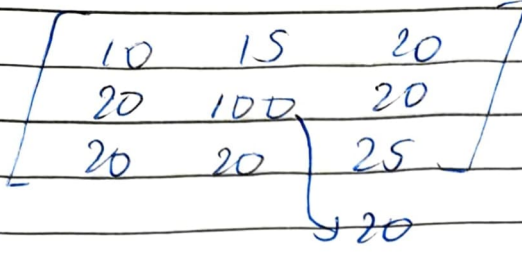 10 15 20
20 100 20
20 20 25
20